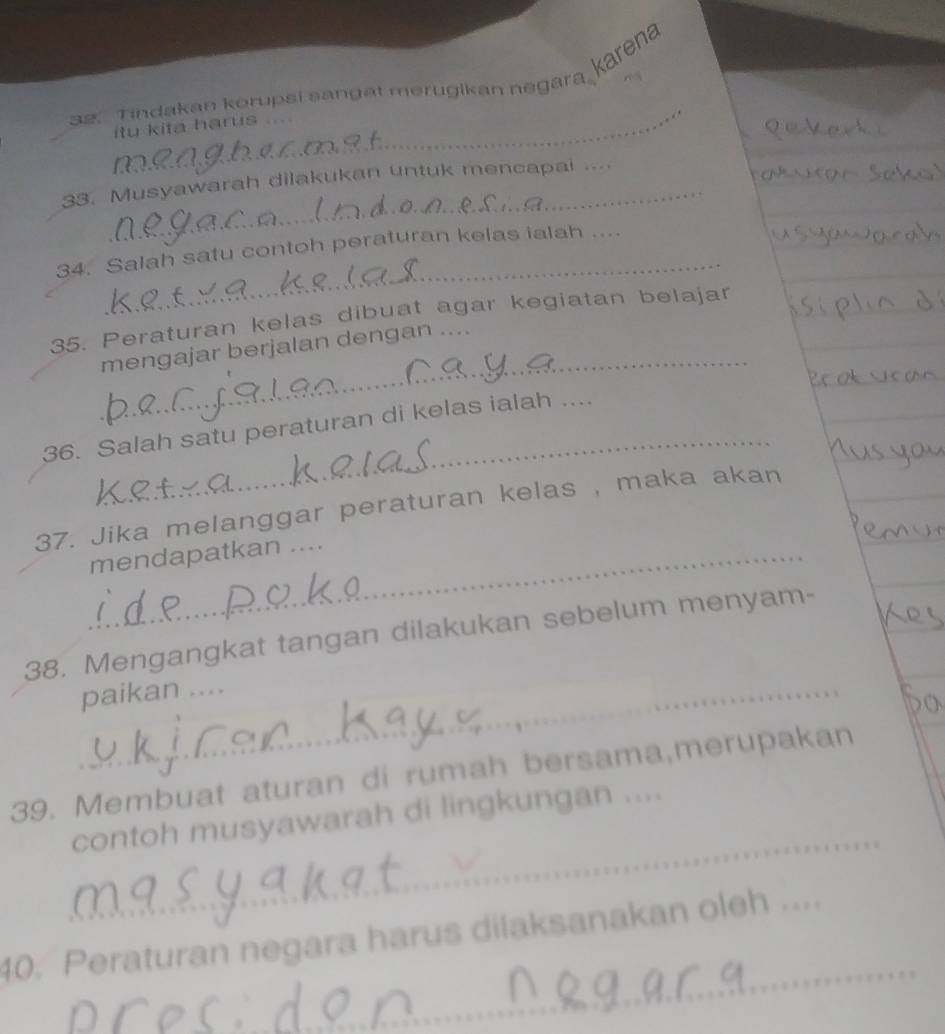 32. Tindakan korupsi sangat merugikan negara, karena
itu kita harus ....
menghormat
33. Musyawarah dilakukan untuk mencapai ....
negara Indonesia
34. Salah satu contoh peraturan kelas ialah ....
ketua kelas
35. Peraturan kelas dibuat agar kegiatan belajar
mengajar berjalan dengan ....
berjalan raya
36. Salah satu peraturan di kelas ialah ....
ketua kelas
37. Jika melanggar peraturan kelas , maka akan
mendapatkan ....
ide poko
38. Mengangkat tangan dilakukan sebelum menyam-
paikan ....
ukiran kayu
39. Membuat aturan di rumah bersama,merupakan
contoh musyawarah di lingkungan ....
masyakat
40. Peraturan negara harus dilaksanakan oleh ....
presiden negara
usyawarah
siplin di
eraturan
Musyaw
Pemun
Kes